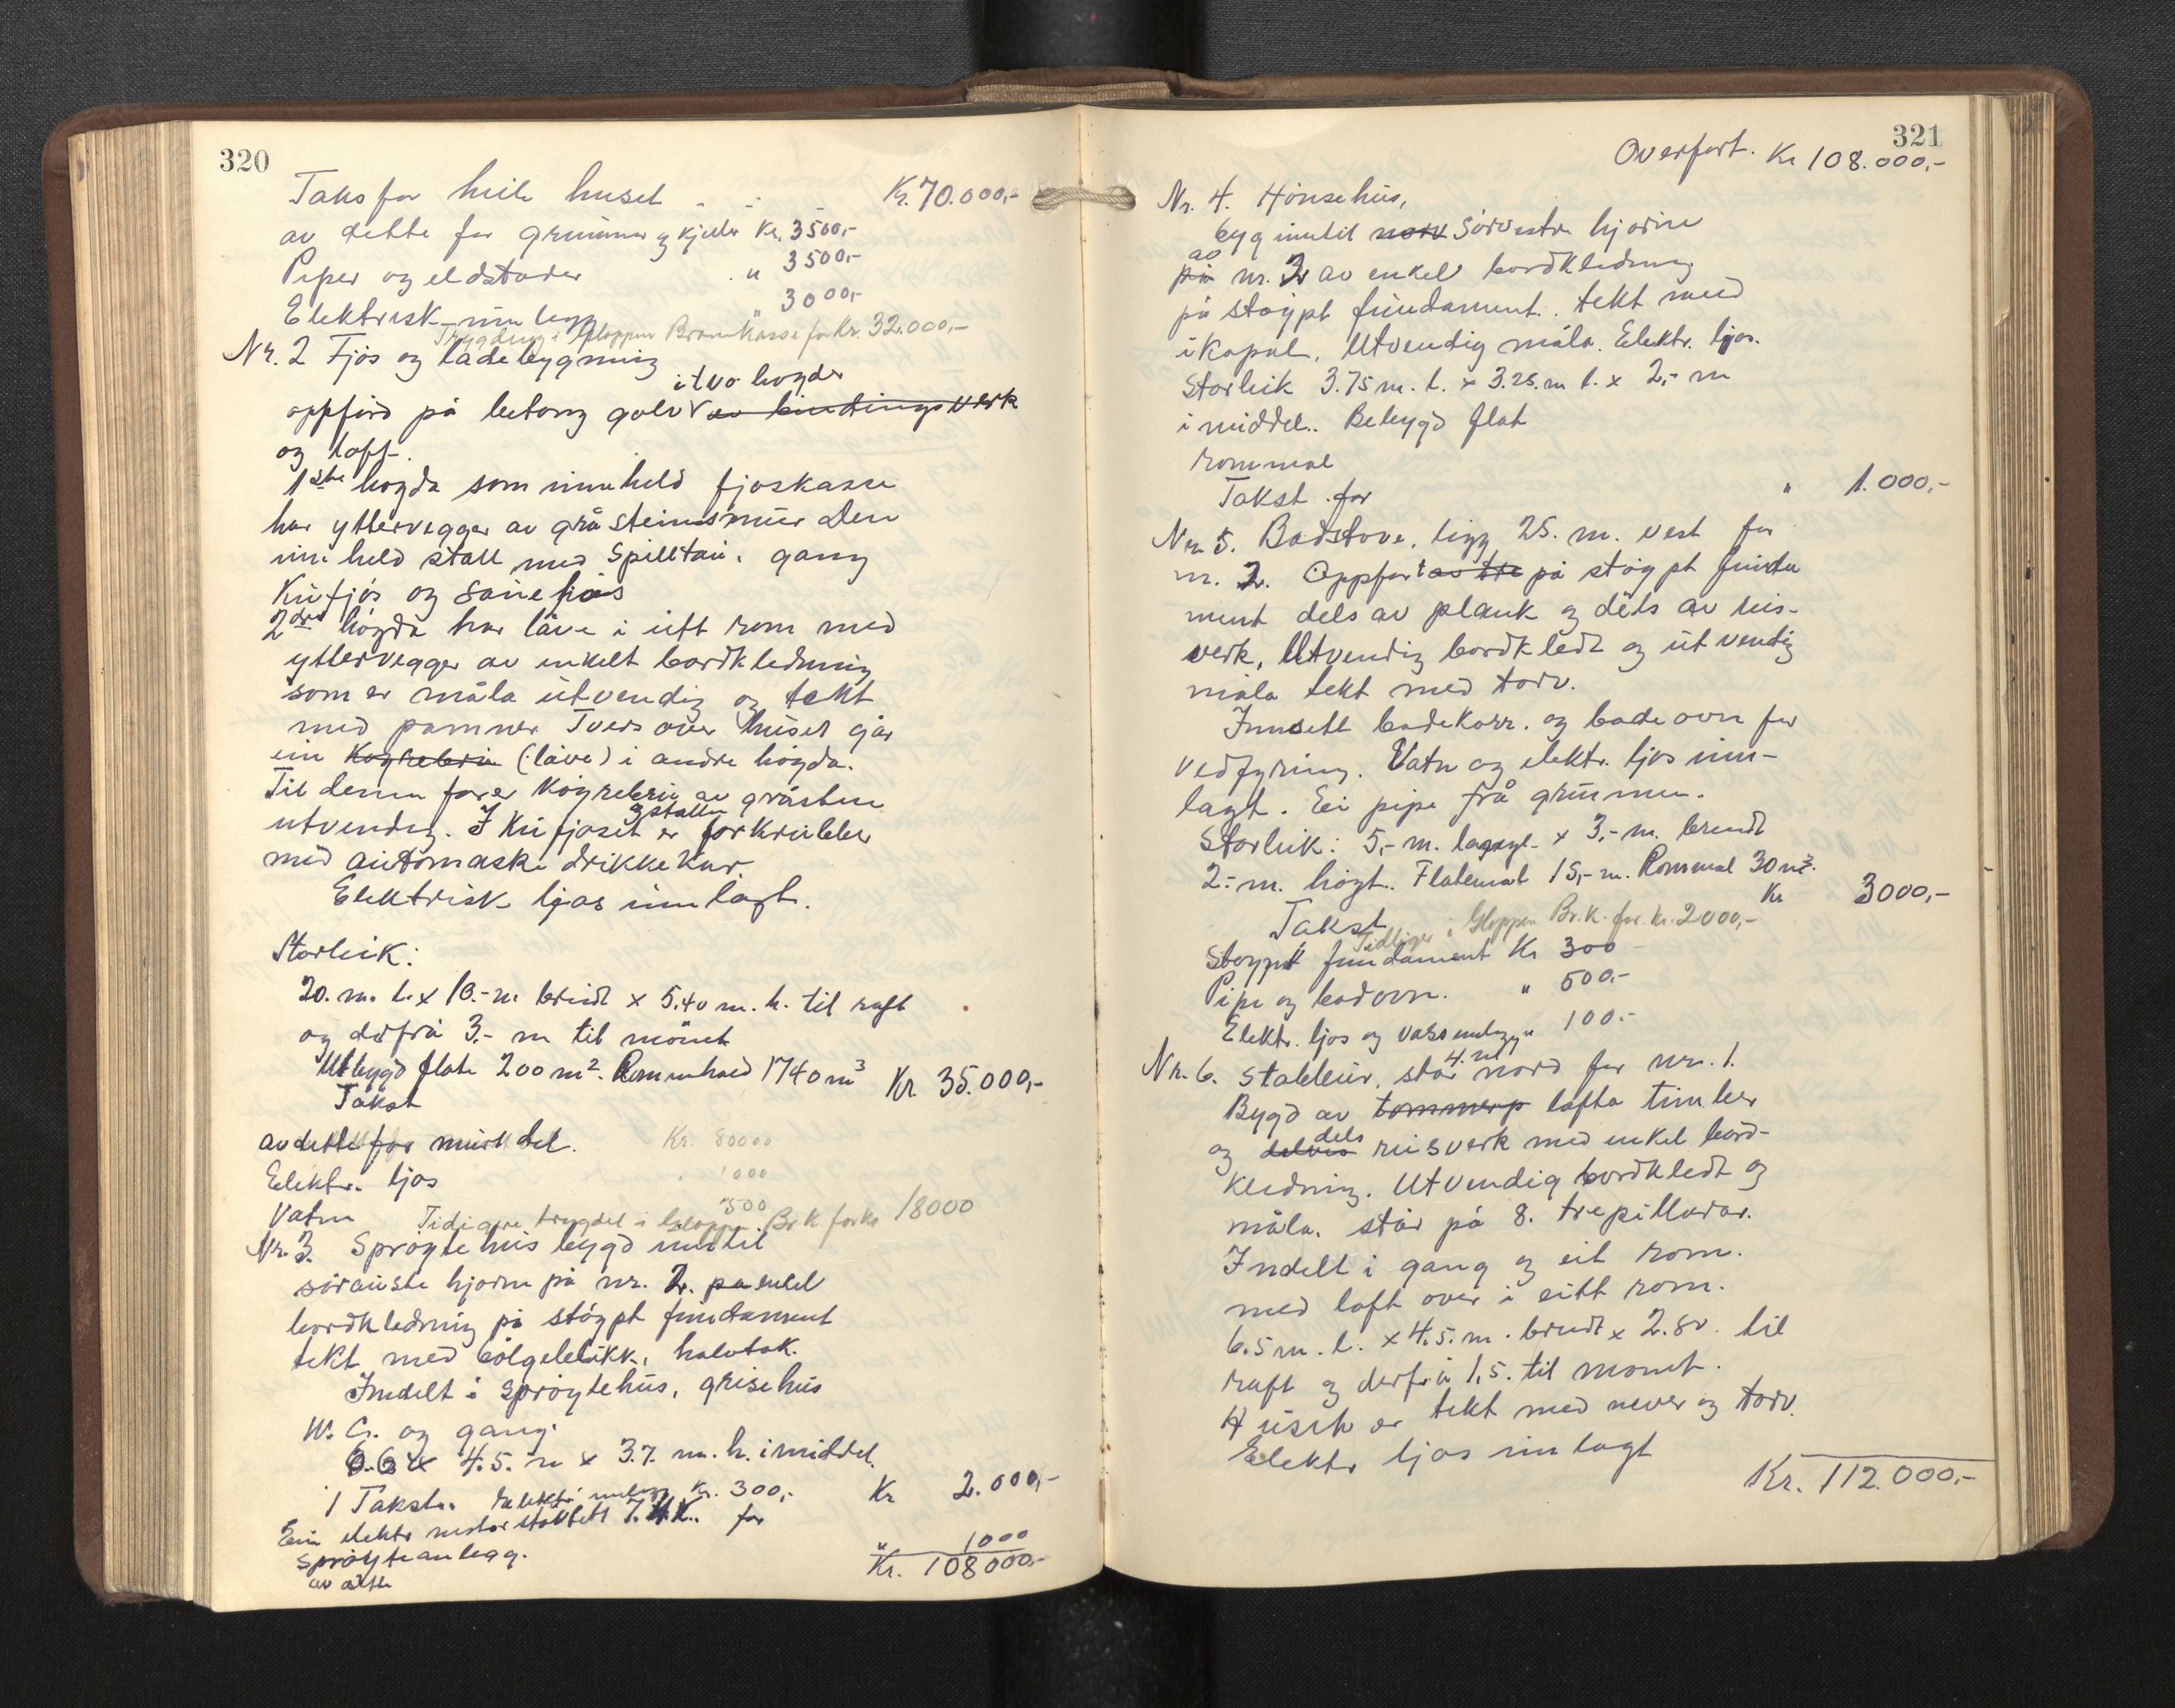 320
Taks for heile huset . . Kr. 70.000,-
av dette for grunnmur og kjellar Kr. 3500,-
Piper og eldstader " 3500,-
Elektrisk innlegg " 3000,-
Trygding i Gloppen Brannkasse for Kr. 32.000,-
Nr. 2 Fjös og lådebygning
i tvo högder
oppförd på betong golv av bindingsverk
og loft.
1ste högda som inneheld fjoskasse
har yttervegger av gråsteinsmur Den
inneheld stall med Spilltau. gang
Kufjös og sauefjös
2dre högda har låve i eitt rom med
yttervegger av enkelt bordkledning
som er måla utvendig og tekt
med panner Tvers over huset gjår
ein Köyrebru (låve) i andre högda.
Til denne förer Köyrebru av gråstein
utvendig. I Kufjoset og stallen er forkrubber
med automaske drikkekar.
Elektrisk ljos innlagt.
Storleik:
20. m. l. x 10.- m breidt x 5.40 m. h. til raft
og derfrå 3.- m til mönet
Utbygd flate 200 m². Rominhald 1740 m³ Kr. 35.000,-
Takst
av dette for murt del. Kr. 80000
Elektr. ljos 1000
Vatn 500
Tidigare trygdet i Gloppen Br K for kr 18000
Nr. 3. Spröytehus bygd inntil
söraustre hjorne på nr. 2. på enkel
bordkledning på stöypt fundament
tekt med bölgeblikk, halvtak.
Inndelt i spröytehus, grisehus
W. C. og gang.
6.6 x 4.5. m x 3.7. m. h. i middel.
1 Takst. Elektr. innlegg Kr. 300,- Kr 2.000,-
Ein elektr motor stövtett 7. H.K. for
spröyteanlegg. " 1000
av dette Kr. 108000,-
321
Overfört. Kr 108.000,-
Nr. 4. Hönsehus,
bygg inntil norv Sörvestre hjorne
av
på nr. 2 av enkel bordkledning
på stöypt fundament. tekt med
ikopal. Utvendig måla. Elektr. ljos.
Storleik 3.75 m. l. x 3.25. m b. x 2,- m
i middel.. Bebygd flat
rommål
Takst for " 1.000,-
Nr. 5. Badstove, ligg 25. m. vest for
nr. 2. Oppfört av tre på stöypt funda
ment dels av plank og dels av reis-
verk, Utvendig bordkledt og utvendig
måla tekt med torv.
Innsett badekarr. og badeovn for
vedfyring. Vatn og elektr. ljos inn-
lagt. Ei pipe frå grunnen.
Storleik: 5,- m. langt x 3,- m. breidt
2.- m. högt. Flatemål 15,- m. Rommål 30 m³.
Takst Kr 3000,-
Tidligere i Gloppen Br.K. for kr. 2000,-
Stöypt fundament Kr 300
Pipe og badovn. " 500.-
Elektr. ljos og vassinnlegg " 100.-
Nr. 6. Stabbur, står 4. m nord for nr. 1.
Bygd av tommerp lafta timber
og delvis dels reisverk med enkel bord-
kledning. Utvendig bordkledt og
måla. står på 8. trepillarar.
Indelt i gang og eit rom.
med loft over i eitt rom.
6.5 m. l. x 4.5. m. breidt x 2.80. til
raft og derfrå 1,5. til mönet.
Huset er tekt med never og torv.
Elektr ljos innlagt
Kr. 112.000,-